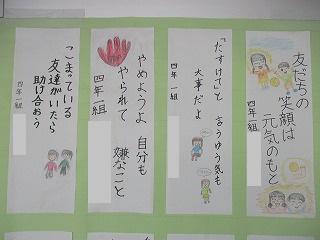 友だちの
笑顔は
元気のもと
四年一組
「たすけて」と
言うゆう気も
大事だよ
四年 一組
やめようよ 自分も
やられて 嫌なこと
四年一組
こまっている
友達がいたら
助け合おう
四年一組